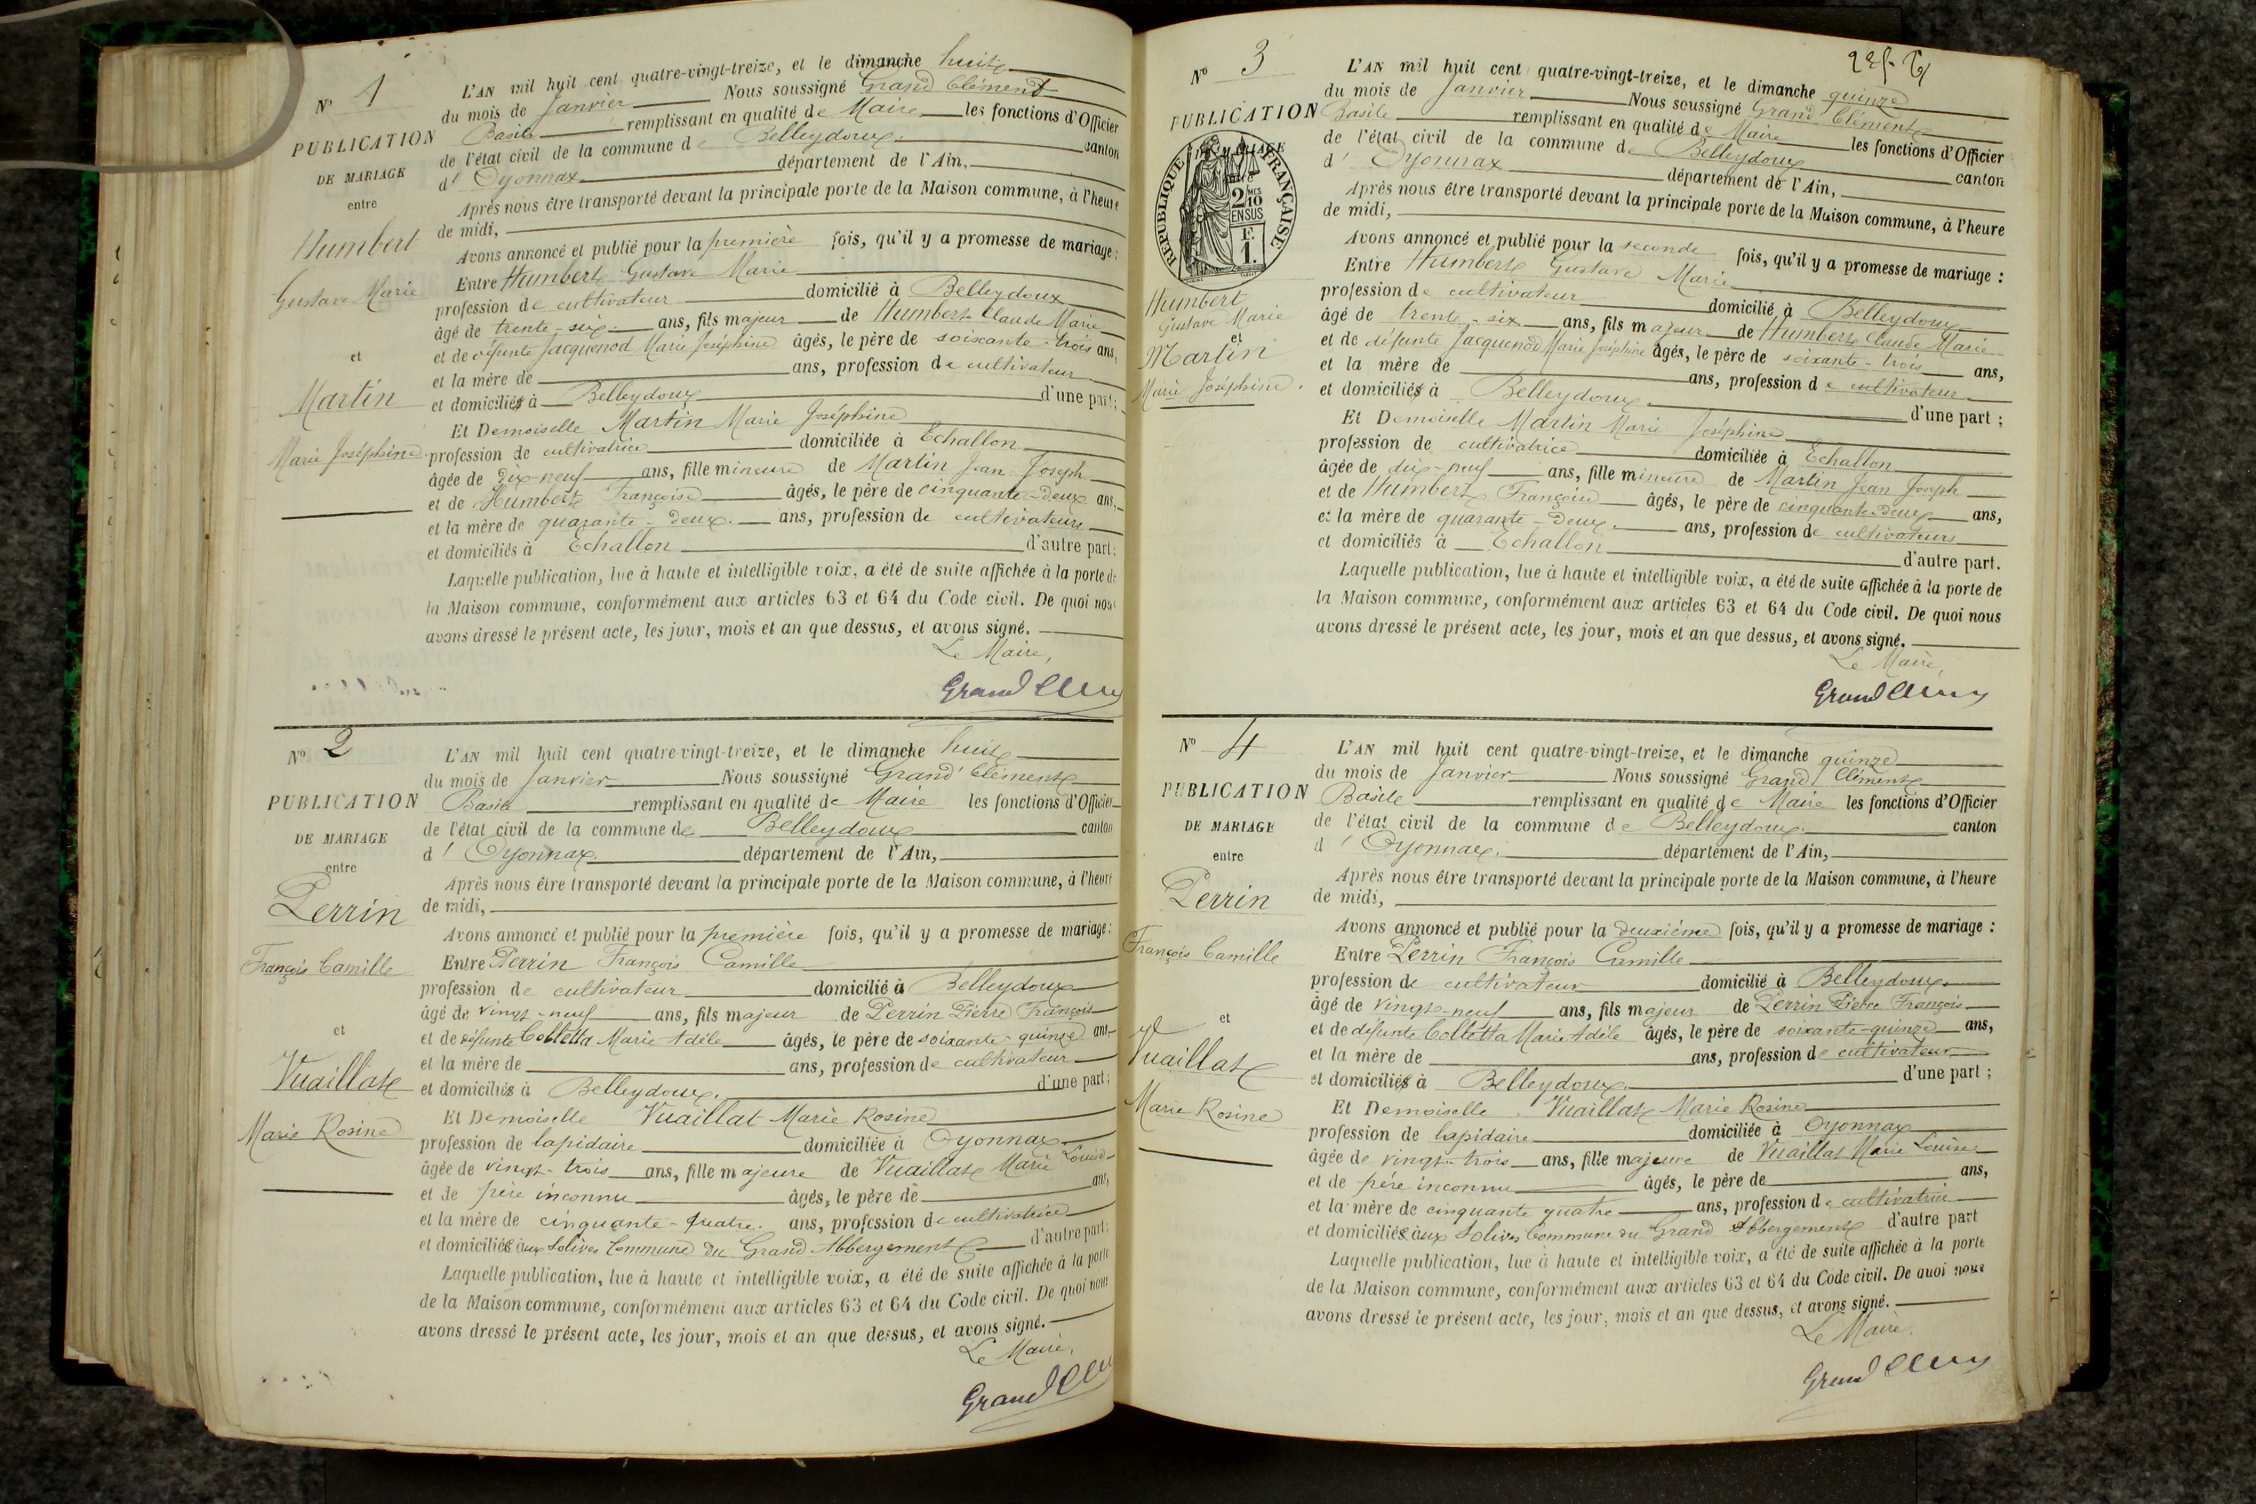 N° 1
PUBLICATION
DE MARIAGE
entre
Humbert
Gustave Marie
et
Martin
Marie Joséphine
L'AN mil huit cent quatre-vingt-treize, et le dimanche huit
du mois de Janvier Nous soussigné Grand Clément
Basile remplissant en qualité de Maire les fonctions d'Officier
de l'état civil de la commune de Belleydoux canton
d' Oyonnax département de l'Ain,
Après nous être transporté devant la principale porte de la Maison commune, à l'heure
de midi,
Avons annoncé et publié pour la première fois, qu'il y a promesse de mariage:
Entre Humbert Gustave Marie
profession de cultivateur domicilié à Belleydoux
âgé de trente-six ans, fils majeur de Humbert Claude Marie
et de défunte Jacquenod Marie Joséphine âgés, le père de soixante-trois ans,
et la mère de ans, profession de cultivateur
et domiciliés à Belleydoux d'une part;
Et Demoiselle Martin Marie Joséphine
profession de cultivatrice domiciliée à Echallon
âgée de dix-neuf ans, fille mineure de Martin Jean Joseph
et de Humbert Françoise âgés, le père de cinquante-deux ans,
et la mère de quarante-deux ans, profession de cultivateurs
et domiciliés à Echallon d'autre part:
Laquelle publication, lue à haute et intelligible voix, a été de suite affichée à la porte de
la Maison commune, conformément aux articles 63 et 64 du Code civil. De quoi nous
avons dressé le présent acte, les jour, mois et an que dessus, et avons signé.
Le Maire,
Grand Clém
N° 2
PUBLICATION
DE MARIAGE
entre
Perrin
François Camille
et
Vuaillat
Marie Rosine
L'AN mil huit cent quatre-vingt-treize, et le dimanche huit
du mois de Janvier Nous soussigné Grand Clément
Basile remplissant en qualité de Maire les fonctions d'Officier
de l'état civil de la commune de Belleydoux canton
d' Oyonnax département de l'Ain,
Après nous être transporté devant la principale porte de la Maison commune, à l'heure
de midi,
Avons annoncé et publié pour la première fois, qu'il y a promesse de mariage:
Entre Perrin François Camille
profession de cultivateur domicilié à Belleydoux
âgé de vingt-neuf ans, fils majeur de Perrin Pierre François
et de défunte Colletta Marie Adèle âgés, le père de soixante-quinze ans
et la mère de ans, profession de cultivateur
et domiciliés à Belleydoux. d'une part;
Et Demoiselle Vuaillat Marie Rosine
profession de lapidaire domiciliée à Oyonnax
âgée de vingt-trois ans, fille majeure de Vuaillat Marie Louise
et de père inconnu âgés, le père de ans,
et la mère de cinquante-quatre ans, profession de cultivatrice
et domiciliés aux Solives Commune du Grand Abbergement d'autre part:
Laquelle publication, lue à haute et intelligible voix, a été de suite affichée à la porte
de la Maison commune, conformément aux articles 63 et 64 du Code civil. De quoi nous
avons dressé le présent acte, les jour, mois et an que dessus, et avons signé.
Le Maire,
Grand Clé
N° 3
PUBLICATION
DE MARIAGE
RÉPUBLIQUE FRANÇAISE
2 MES
10
EN SUS
1 F.
Humbert
Gustave Marie
et
Martin
Marie Joséphine
L'AN mil huit cent quatre-vingt-treize, et le dimanche quinze
du mois de Janvier Nous soussigné Grand Clément
Basile remplissant en qualité de Maire les fonctions d'Officier
de l'état civil de la commune de Belleydoux canton
d' Oyonnax département de l'Ain,
Après nous être transporté devant la principale porte de la Maison commune, à l'heure
de midi,
Avons annoncé et publié pour la seconde fois, qu'il y a promesse de mariage :
Entre Humbert Gustave Marie
profession de cultivateur domicilié à Belleydoux
âgé de trente-six ans, fils majeur de Humbert Claude Marie
et de défunte Jacquenod Marie Joséphine âgés, le père de soixante-trois ans,
et la mère de ans, profession de cultivateur
et domiciliés à Belleydoux d'une part ;
Et Demoiselle Martin Marie Joséphine
profession de cultivatrice domiciliée à Echallon
âgée de dix-neuf ans, fille mineure de Martin Jean Joseph
et de Humbert Françoise âgés, le père de cinquante-deux ans,
et la mère de quarante-deux. ans, profession de cultivateurs
et domiciliés à Echallon d'autre part.
Laquelle publication, lue à haute et intelligible voix, a été de suite affichée à la porte de
la Maison commune, conformément aux articles 63 et 64 du Code civil. De quoi nous
avons dressé le présent acte, les jour, mois et an que dessus, et avons signé.
Le Maire,
Grand Clém
N° 4
PUBLICATION
DE MARIAGE
entre
Perrin
François Camille
et
Vuaillat
Marie Rosine
L'AN mil huit cent quatre-vingt-treize, et le dimanche quinze
du mois de Janvier Nous soussigné Grand Clément
Basile remplissant en qualité de Maire les fonctions d'Officier
de l'état civil de la commune de Belleydoux. canton
d' Oyonnax. département de l'Ain,
Après nous être transporté devant la principale porte de la Maison commune, à l'heure
de midi,
Avons annoncé et publié pour la deuxième fois, qu'il y a promesse de mariage :
Entre Perrin François Camille
profession de cultivateur domicilié à Belleydoux.
âgé de vingt-neuf ans, fils majeur de Perrin Pierre François
et de défunte Colletta Marie Adèle âgés, le père de soixante-quinze ans,
et la mère de ans, profession de cultivateur
et domiciliés à Belleydoux. d'une part ;
Et Demoiselle Vuaillat Marie Rosine
profession de lapidaire domiciliée à Oyonnax
âgée de vingt-trois ans, fille majeure de Vuaillat Marie Louise
et de père inconnu âgés, le père de ans,
et la mère de cinquante quatre ans, profession de cultivatrice
et domiciliés aux Solives Commune du Grand Abbergement d'autre part
Laquelle publication, lue à haute et intelligible voix, a été de suite affichée à la porte
de la Maison commune, conformément aux articles 63 et 64 du Code civil. De quoi nous
avons dressé le présent acte, les jour, mois et an que dessus, et avons signé.
Le Maire.
Grand Clém